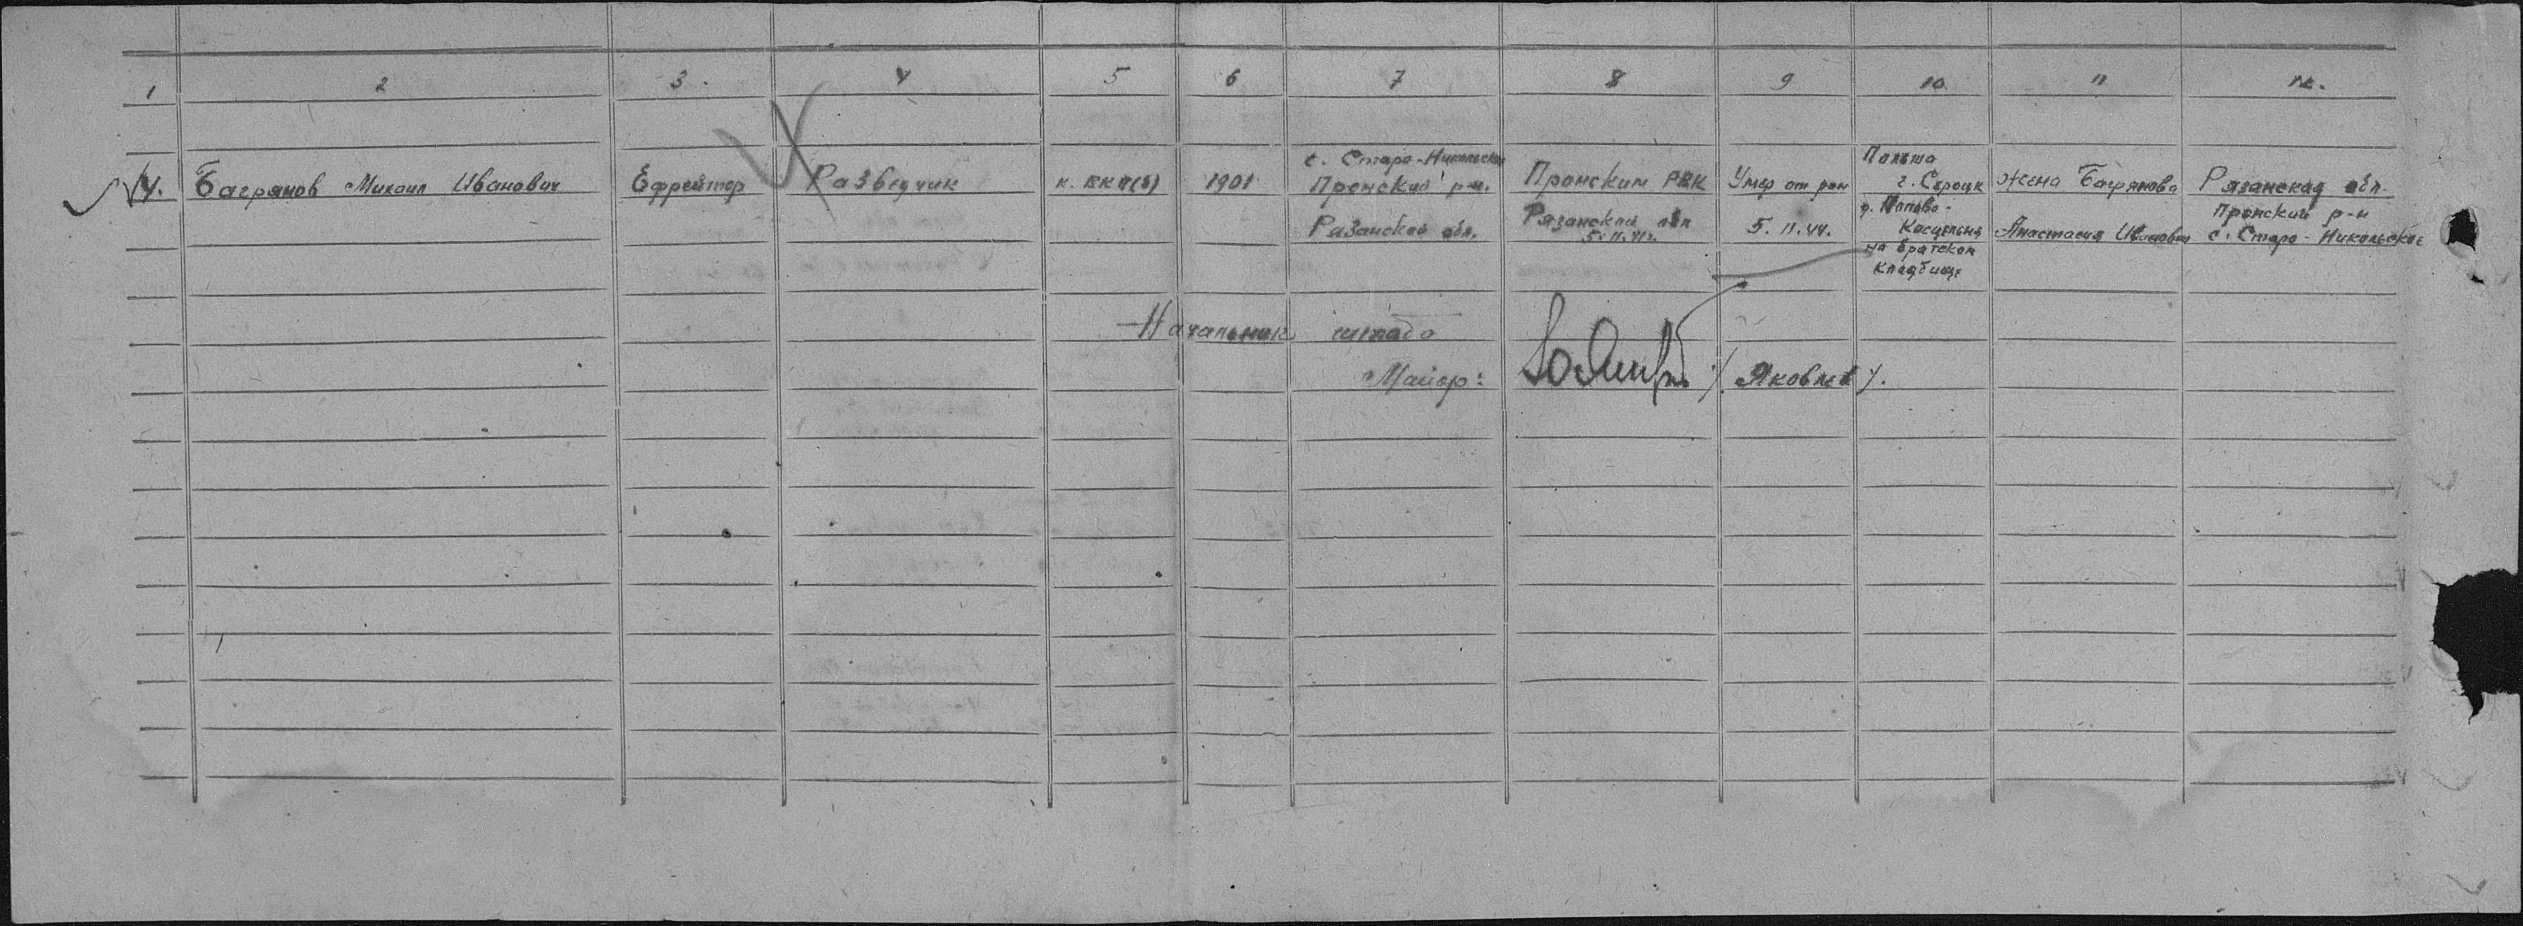 1 2 3. 4 5 6 7 8 9 10 11 12.
4. Багрянов Михаил Иванович Ефрейтор Разведчик к. ВКП(б) 1901
с. Старо-Никольское
Пронский р-н.
Рязанской обл.
Пронским РВК
Рязанской обл
5.11.41г.
Умер от ран
5.11.44.
Польша
г. Сероцк
д. Попово-
Касцельня
на братском
кладбище
жена Багрянова
Анастасия Ивановна
Рязанская обл.
Пронский р-н
с. Старо-Никольское
Начальник штаба
Майор: /Яковлев/.